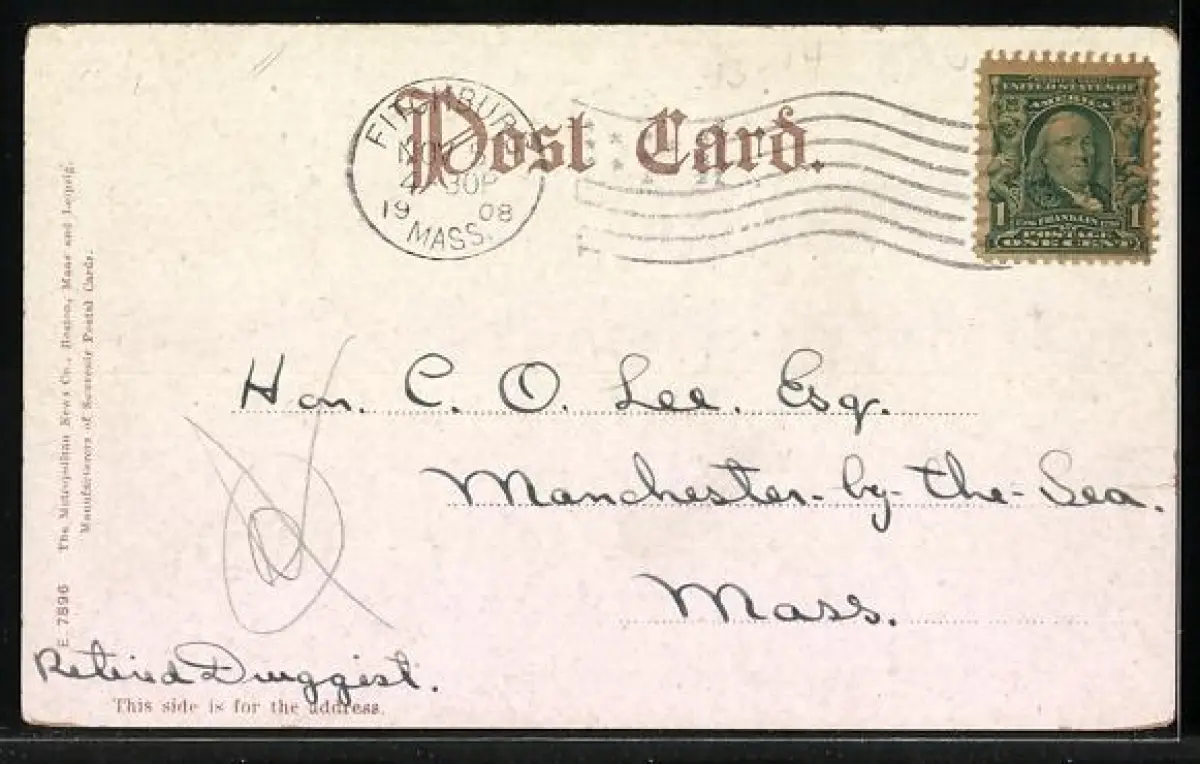 Post Card.
FITCHBURG
30P
19 08
MASS.
UNITED STATES OF
AMERICA
1 FRANKLIN 1
POSTAGE
ONE CENT
Hon. C. O. Lee. Esq.
Manchester-by-the-Sea.
Mass.
Retired Druggist.
This side is for the address.
E. 7896 The Metropolitan News Co., Boston, Mass and Leipzig.
Manufacturers of Souvenir Postal Cards.